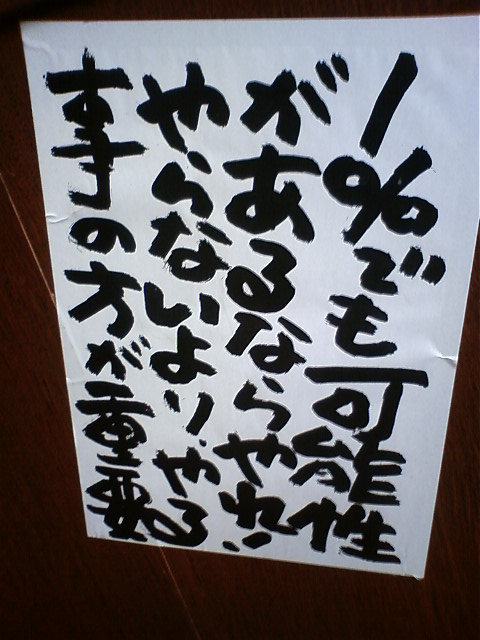 1%でも可能性
があるならやれ!
やらないより、やる
事の方が重要